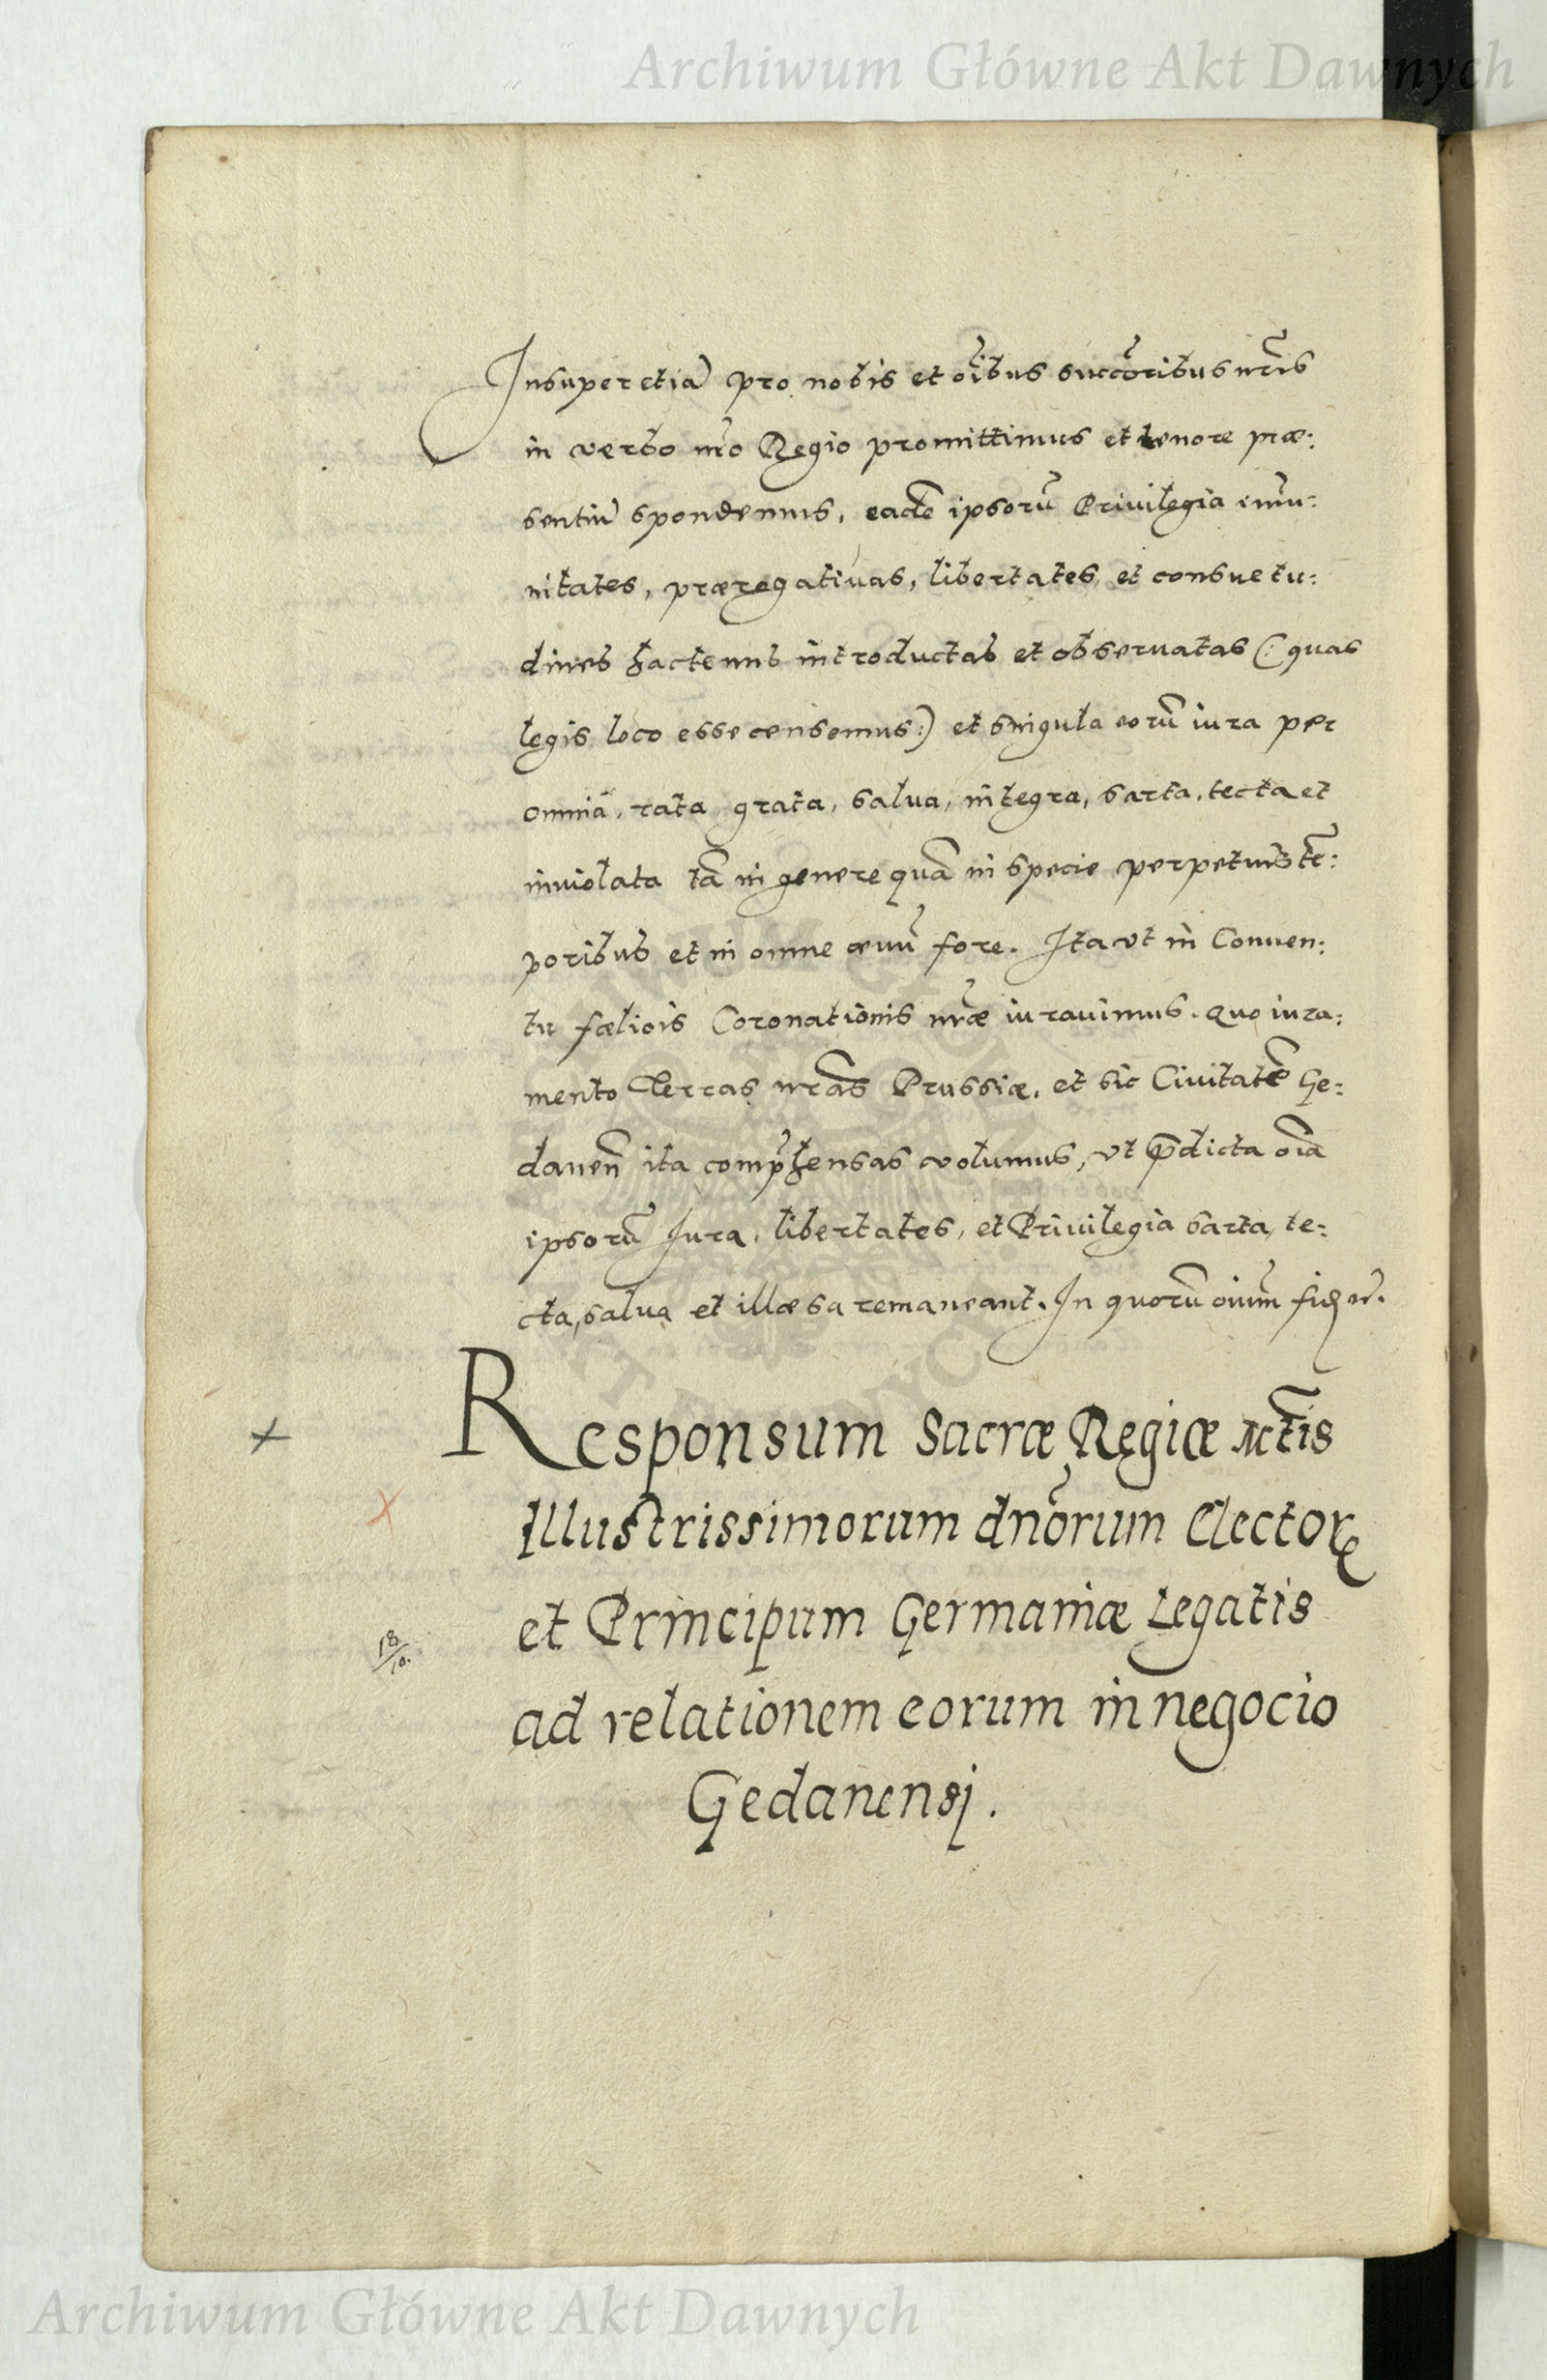 Archiwum Główne Akt Dawnych
Insuper etiā pro nobis et oībus succōribus nr̄is
in verbo nr̄o Regio promittimus et tenore præ:
sentiū spondemus, eadē ipsorū Priuilegia im̄u:
nitates, prærogatiuas, libertates et consuetu:
dines hactenus introductas et obseruatas (: quas
legis loco esse censemus :) et singula eorū iura per
omnia, rata grata, salua, integra, sarta, tecta et
inuiolata tā in genere quā in specie perpetuis tē:
poribus et in omne æuū fore. Ita vt in Conuen:
tu fœlicis Coronationis nr̄æ iurauimus. Quo iura:
mento Terras nr̄as Prussiæ, et sic Ciuitatē Ge:
danen̄ ita comp̄hensas volumus, vt p̄dicta oīa
ipsorū Iura, libertates, et Priuilegia sarta, te:
cta, salua et illæsa remaneant. In quorū oīum fid etc.
Responsum Sacræ Regiæ Mt̄is
Illustrissimorum dnōrum Elector​ꝝ
et Principum Germaniæ Legatis
18/10.
ad relationem eorum in negocio
Gedanensi.
Archiwum Główne Akt Dawnych